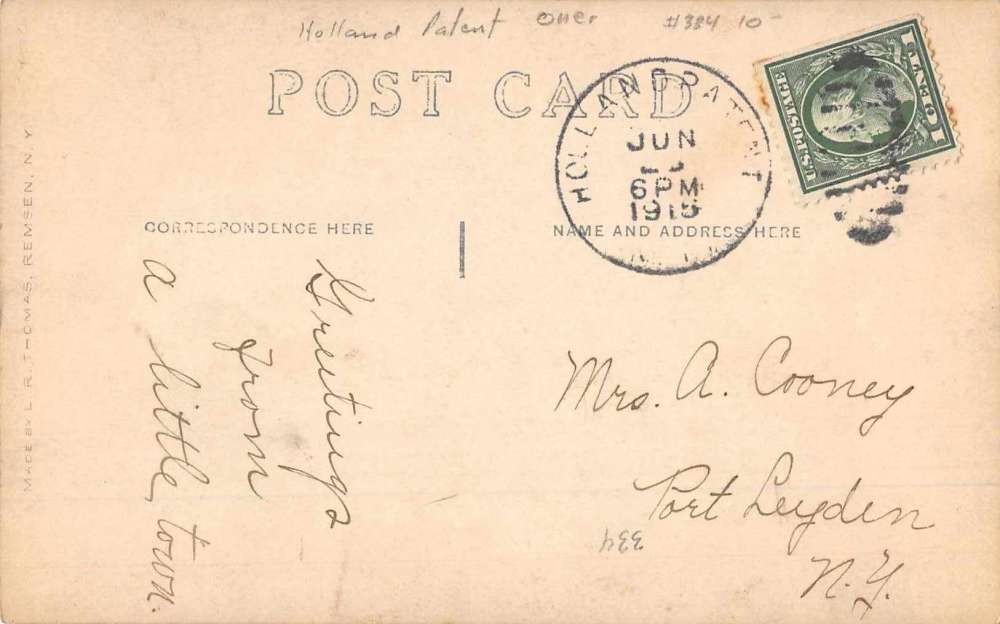 Holland Patent Oner #334 10-
POST CARD
HOLLAND PATENT
JUN
6PM
1915
N.Y.
1 CENT 1
U.S. POSTAGE
CORRESPONDENCE HERE
NAME AND ADDRESS HERE
MADE BY L. R. THOMAS, REMSEN, N.Y.
Greetings
from
a little town.
Mrs. A. Cooney
Port Leyden
N.Y.
334